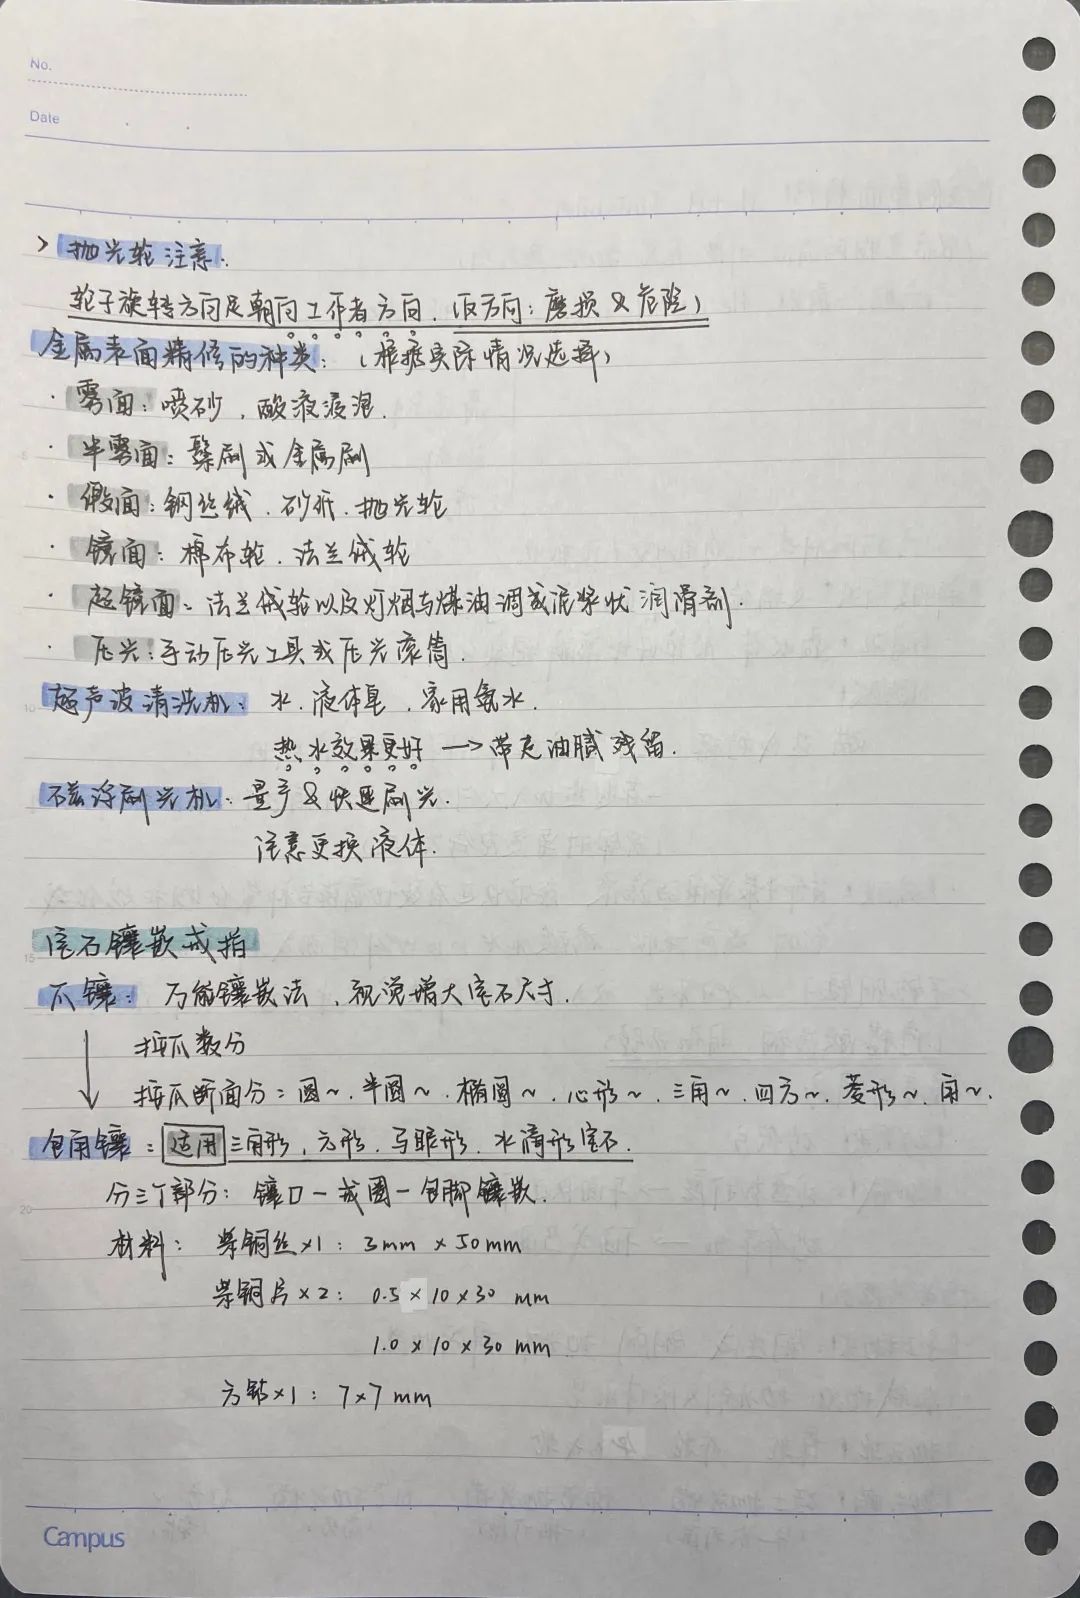 No.
Date
> 抛光轮注意:
轮子旋转方向是朝向工作者方向.(反方向:磨损&危险)
金属表面精修的种类:(根据实际情况选择)
· 雾面:喷砂、酸液浸泡.
· 半雾面:鬃刷或金属刷
· 缎面:钢丝绒、砂纸、抛光轮
· 镜面:棉布轮、法兰绒轮
· 超镜面:法兰绒轮以及灯烟与煤油调成泥浆状润滑剂.
· 压光:手动压光工具或压光滚筒.
超声波清洗机:水、液体皂、家用氨水.
热水效果更好 → 带走油腻残留.
磁浮刷光机:量产&快速刷光.
注意更换液体.
宝石镶嵌戒指
爪镶:万能镶嵌法、视觉增大宝石尺寸.
按爪数分
按爪断面分:圆~、半圆~、椭圆~、心形~、三角~、四方~、菱形~、角~.
包角镶:适用三角形、方形、马眼形、水滴形宝石.
分三个部分:镶口-戒圈-包脚镶嵌.
材料:紫铜丝×1:3mm×50mm
紫铜片×2:0.5×10×30 mm
1.0×10×30 mm
方钻×1:7×7mm
10
15
20
Campus